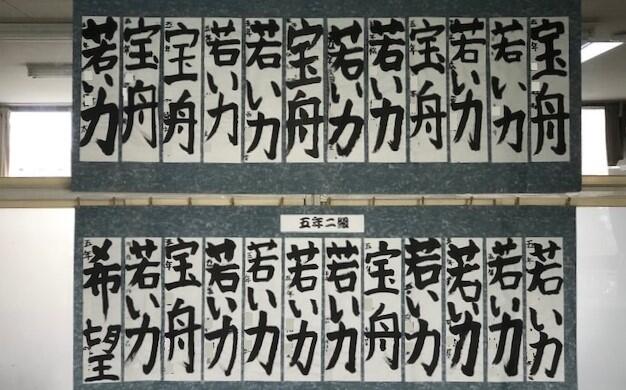 宝舟
若い力
若い力
宝舟
若い力
若い力
宝舟
若い力
若い力
宝舟
宝舟
若い力
五年二組
若い力
若い力
若い力
若い力
宝舟
若い力
若い力
若い力
若い力
宝舟
若い力
希望
五年